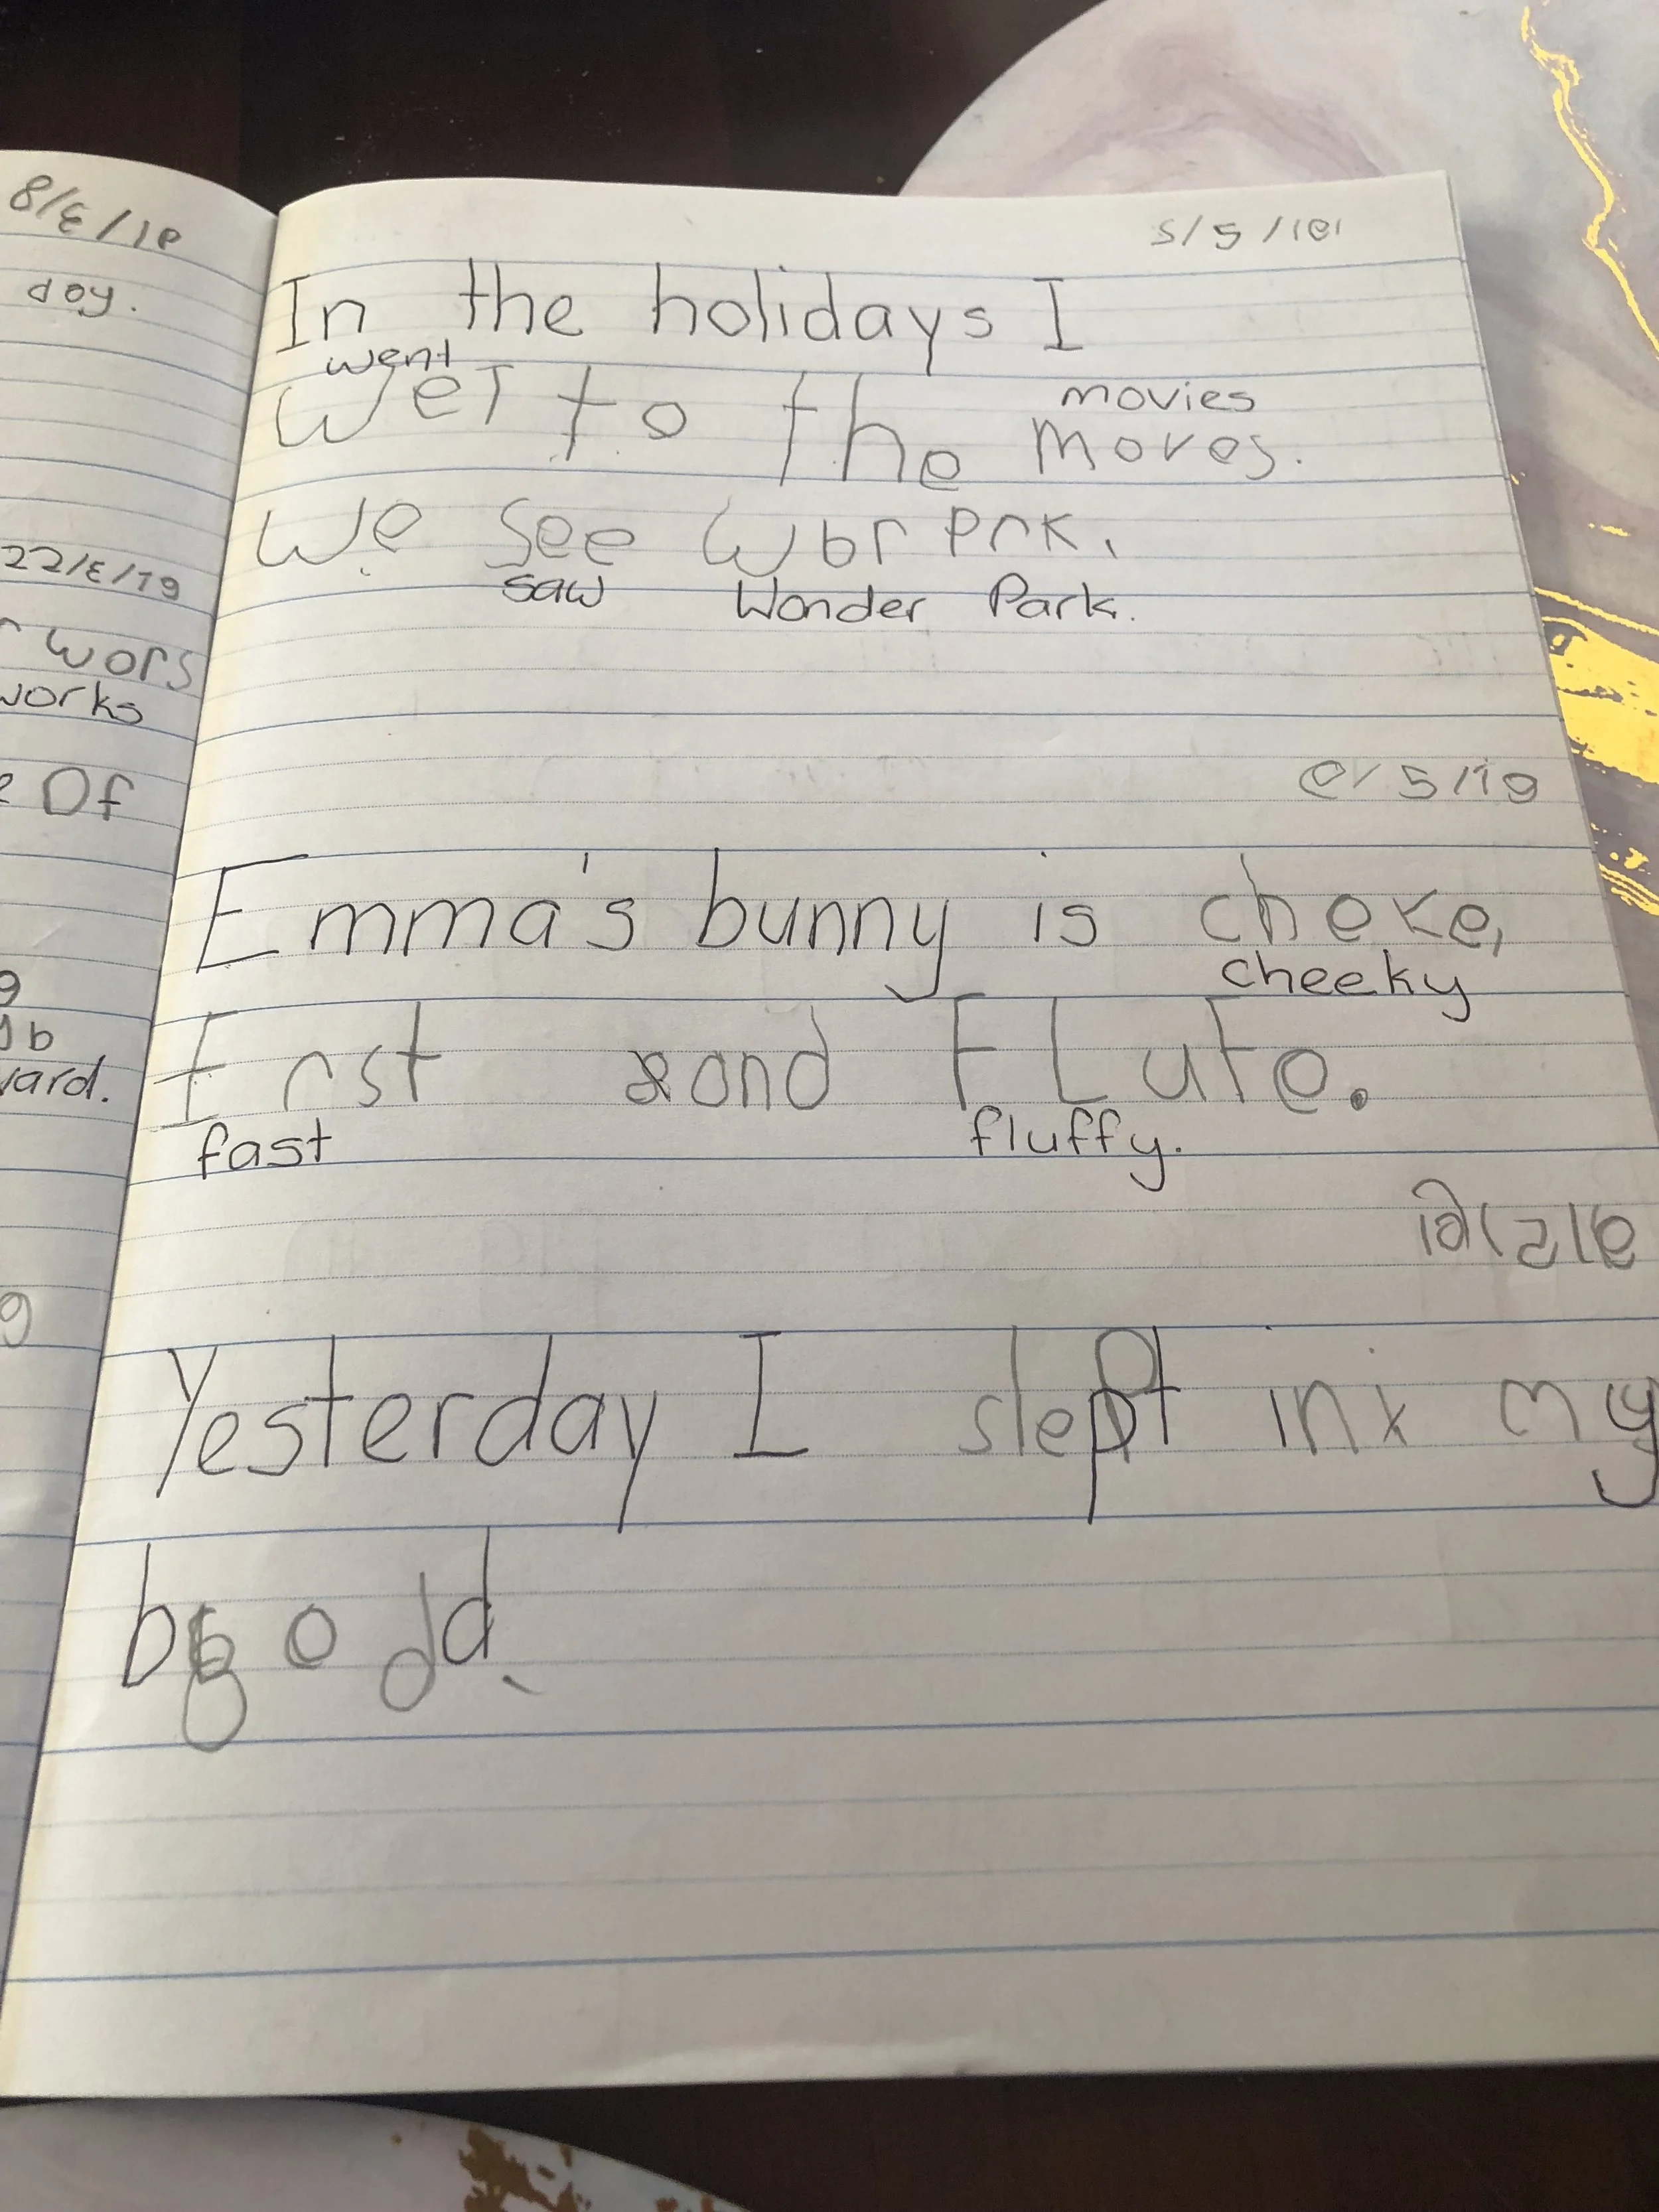 8/3/19
day.
22/3/19
wors
works
Of
b
vard.
5/5/19
In the holidays I
went
wet to the
movies
moves.
We see Wbr Prk.
saw Wonder Park.
5/19
Emma's bunny is cheke,
cheeky
Frst and FLufe.
fast fluffy.
Yesterday I slept in my